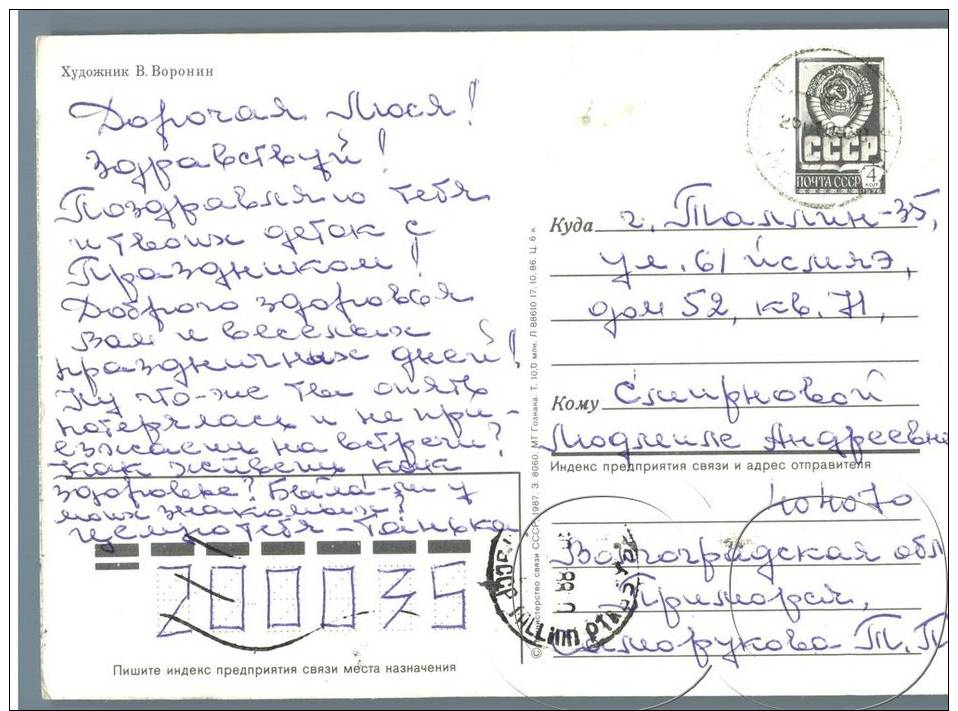 Художник В. Воронин
Дорогая Люся!
Здравствуй!
Поздравляю тебя
и твоих деток с
Праздником!
Доброго здоровья
Вам и веселых
праздничных дней!
Ну что-же ты опять
потерялась и не при-
езжаешь на встречи?
Как живешь, как
здоровье? Была-ли у
моих знакомых?
Целую тебя - Танька
200035
Пишите индекс предприятия связи места назначения
СССР
ПОЧТА СССР 4 КОП
1976
Куда г. Таллин-35,
ул.
дом 52, кв. 71,
Кому Смирновой
Людмиле Андреевне
Индекс предприятия связи и адрес отправителя
Волгоградская обл
Приморск,
Т. П
© Министерство связи СССР. 1987. З. 8060. МТ Гознака. Т. 10,0 млн. Л 88610 17.10.86. Ц. 6 к.
TALLINN PTK